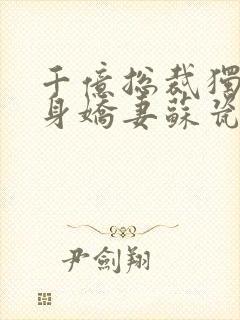 千億總裁獨
身嬌妻蘇瓷
尹劍翔